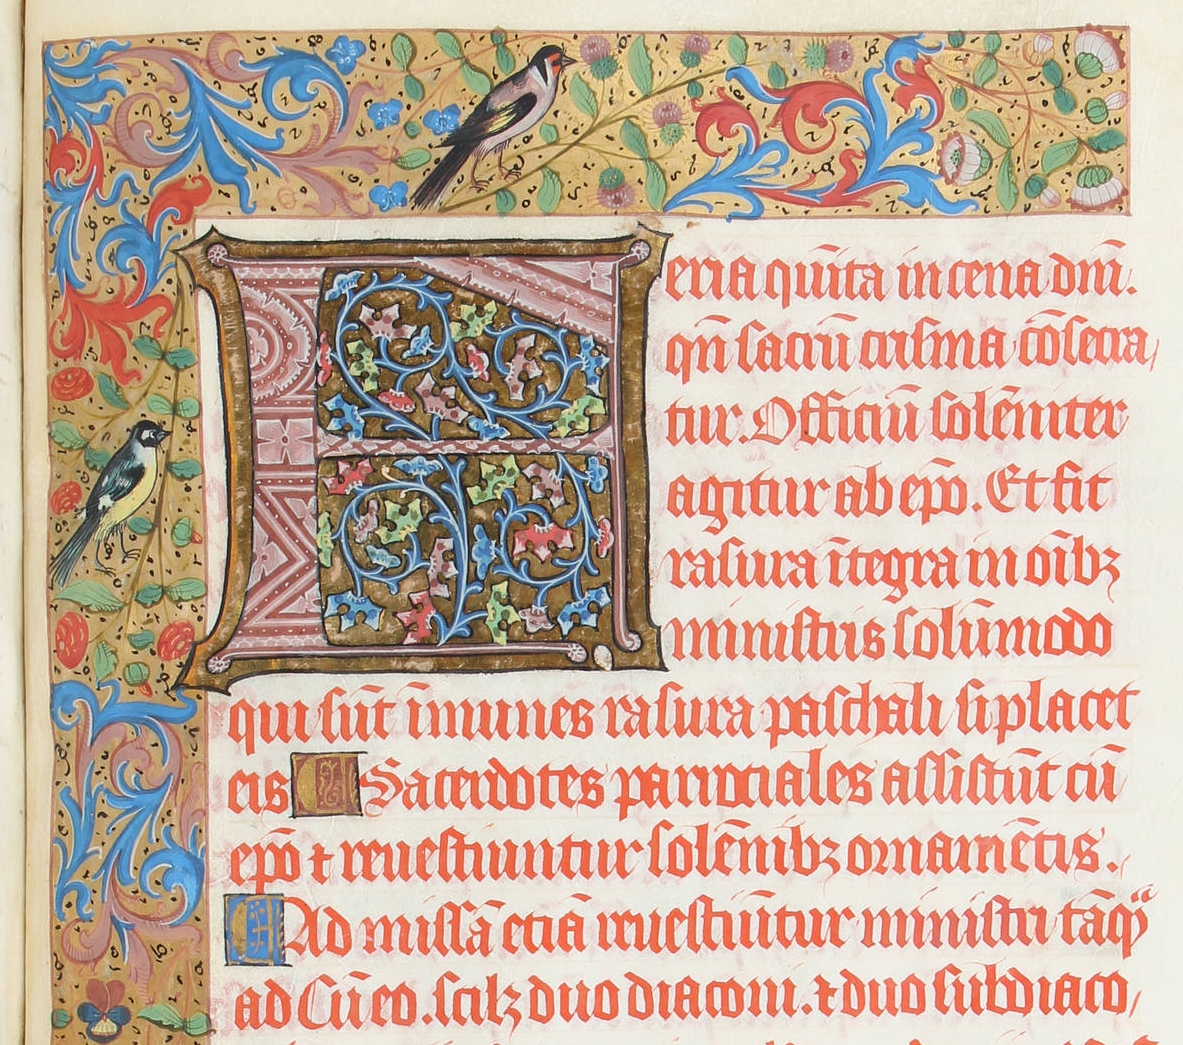 Feria qui̅ta in cena dn̅i.
qn̅ sacru̅ crisma co̅secra/
tur. Officiu̅ sole̅niter
agitur ab ep̅o. Et fit
rasura i̅tegra in oi̅bꝫ
ministris solu̅modo
qui su̅t i̅munes rasura paschali si placet
eis Sacerdotes parrociales assistu̅t cu̅
ep̅o ⁊ reuestiuntur sole̅nibꝫ orname̅tis.
Ad missa̅ etia̅ reuestiu̅tur ministri ta̅qᷓ
ad Cu̅eo. scilꝫ duo diaconi. ⁊ duo subdiaco/